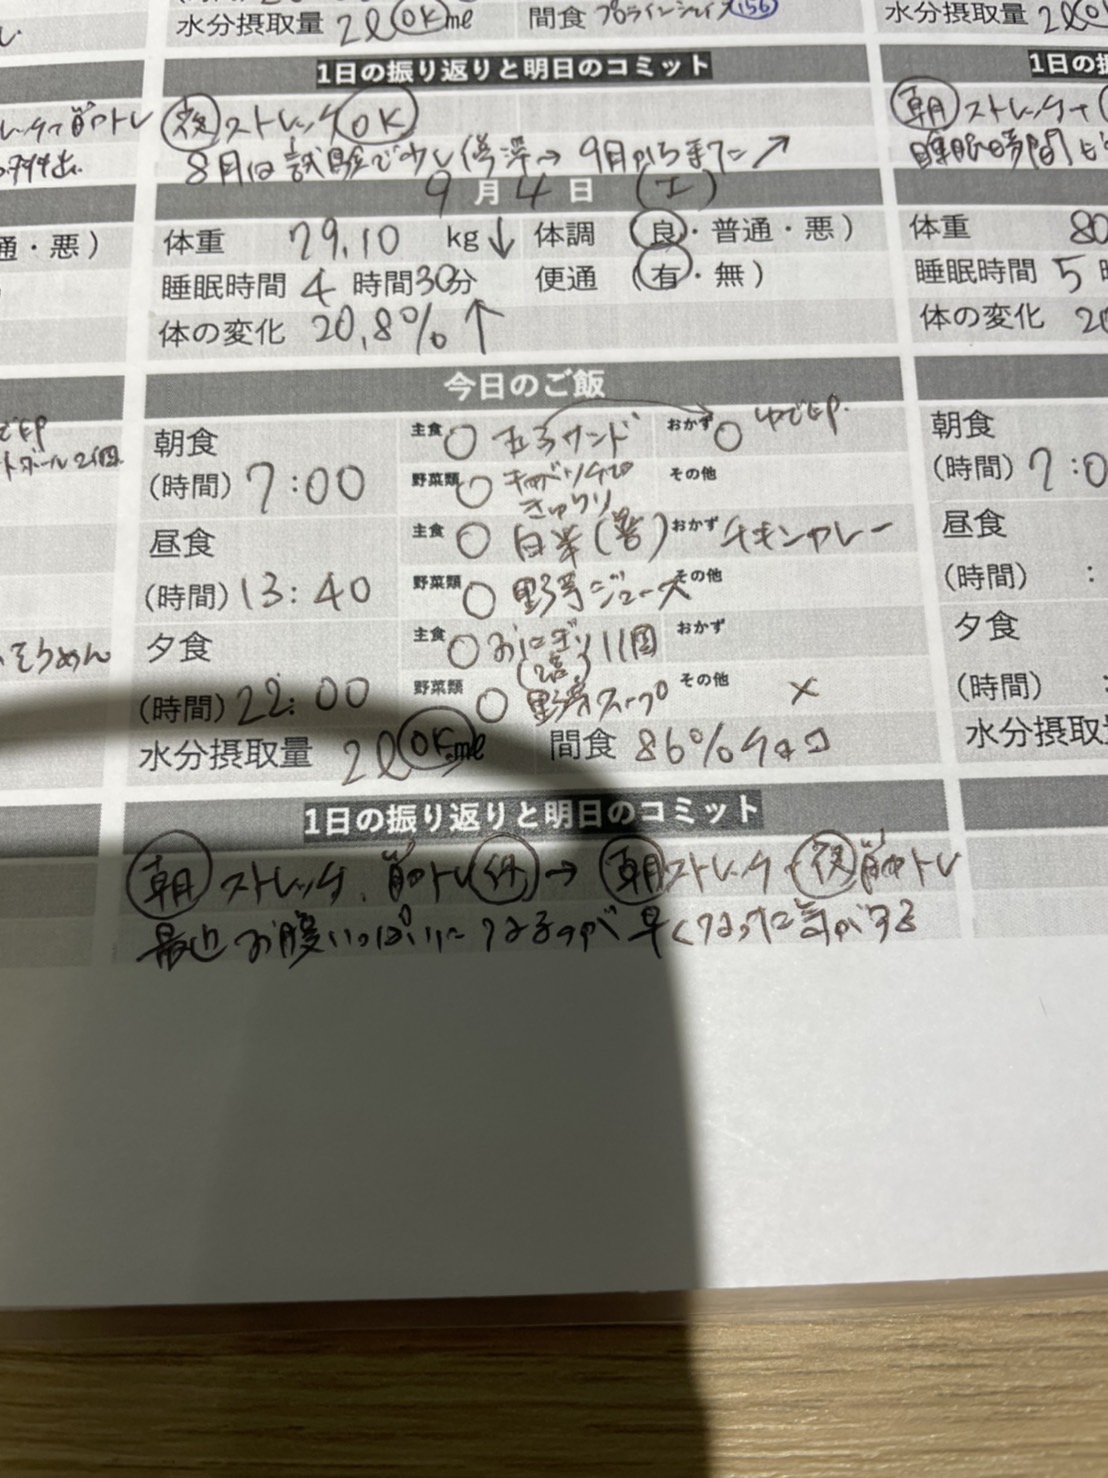 水分摂取量 2ℓ OK ml 間食 プロテインシェイク 156
水分摂取量 2ℓ
1日の振り返りと明日のコミット
1日の振
筋トレ
夜 ストレッチ OK
朝 ストレッチ
8月は試験で少し停滞→9月から再た↗
睡眠時間も
9月4日(工)
通・悪)
体重 79.10 kg↓ 体調 (良・普通・悪)
体重 80
睡眠時間 4時間30分 便通 (有・無)
睡眠時間 5時
体の変化 20.8%↑
体の変化 20
今日のご飯
朝食 主食 ○ たまごサンド おかず ○ ゆで卵
(時間) 7:00 野菜類 ○ キャベツ きゅうり その他
朝食
(時間) 7:0
昼食 主食 ○ 白米(酱) おかず チキンカレー
(時間) 13:40 野菜類 ○ 野菜ジュース その他
昼食
(時間) :
そうめん
夕食 主食 ○ おにぎり 1個 おかず
(時間) 22:00 野菜類 ○ 野菜スープ その他 ×
夕食
(時間) :
水分摂取量 2ℓ OK ml 間食 86%チョコ
水分摂取
1日の振り返りと明日のコミット
朝 ストレッチ、筋トレ 休 → 朝 ストレッチ・夜 筋トレ
最近お腹いっぱいになるのが早くなった気がする